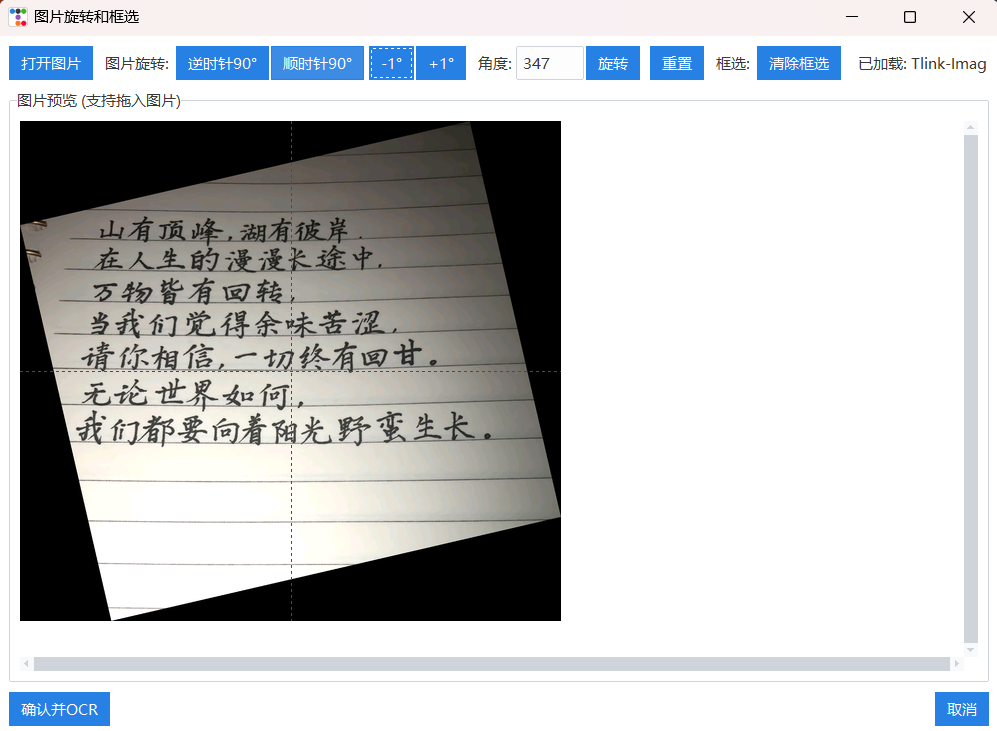 图片旋转和框选
打开图片 图片旋转: 逆时针90° 顺时针90° -1° +1° 角度: 347 旋转 重置 框选: 清除框选 已加载: Tlink-Imag
图片预览 (支持拖入图片)
山有顶峰,湖有彼岸.
在人生的漫漫长途中,
万物皆有回转,
当我们觉得余味苦涩,
请你相信,一切终有回甘。
无论世界如何,
我们都要向着阳光野蛮生长。
确认并OCR 取消